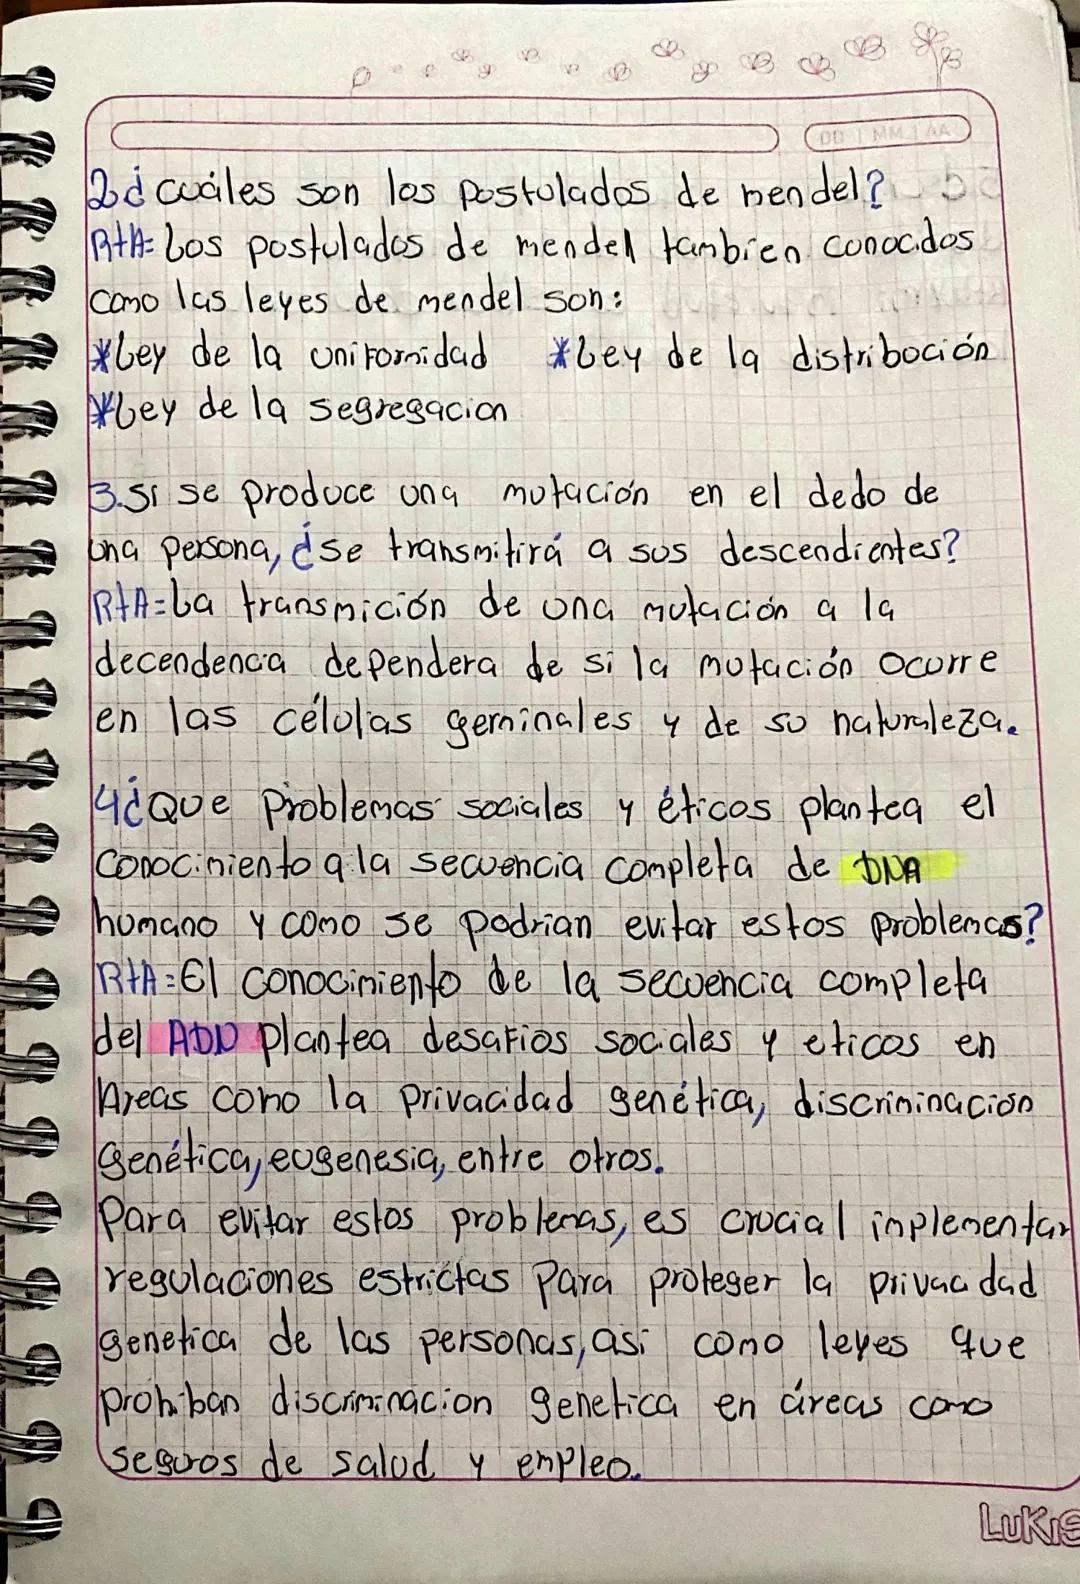 DD MM AA
2¿cuáles son los postulados de mendel?
RtA= Los postulados de mendel tambien conocidos
como las leyes de mendel son:
*Ley de la uniformidad *Ley de la distribución
*Ley de la segregacion
3.si se produce una mutación en el dedo de
una persona, ¿se transmitirá a sus descendientes?
RtA=La transmición de una mutación a la
decendencia dependera de si la mutación ocurre
en las células germinales y de su naturaleza.
4¿Que problemas sociales y éticos plantea el
conocimiento a la secuencia completa de DNA
humano y como se podrian evitar estos problemas?
RtA=El conocimiento de la secuencia completa
del ADN plantea desafios sociales y eticos en
Areas como la privacidad genética, discriminación
genética, eugenesia, entre otros.
Para evitar estos problemas, es crucial implementar
regulaciones estrictas para proteger la privacidad
genetica de las personas, asi como leyes que
prohiban discriminacion genetica en áreas como
seguros de salud y empleo.
LuKis